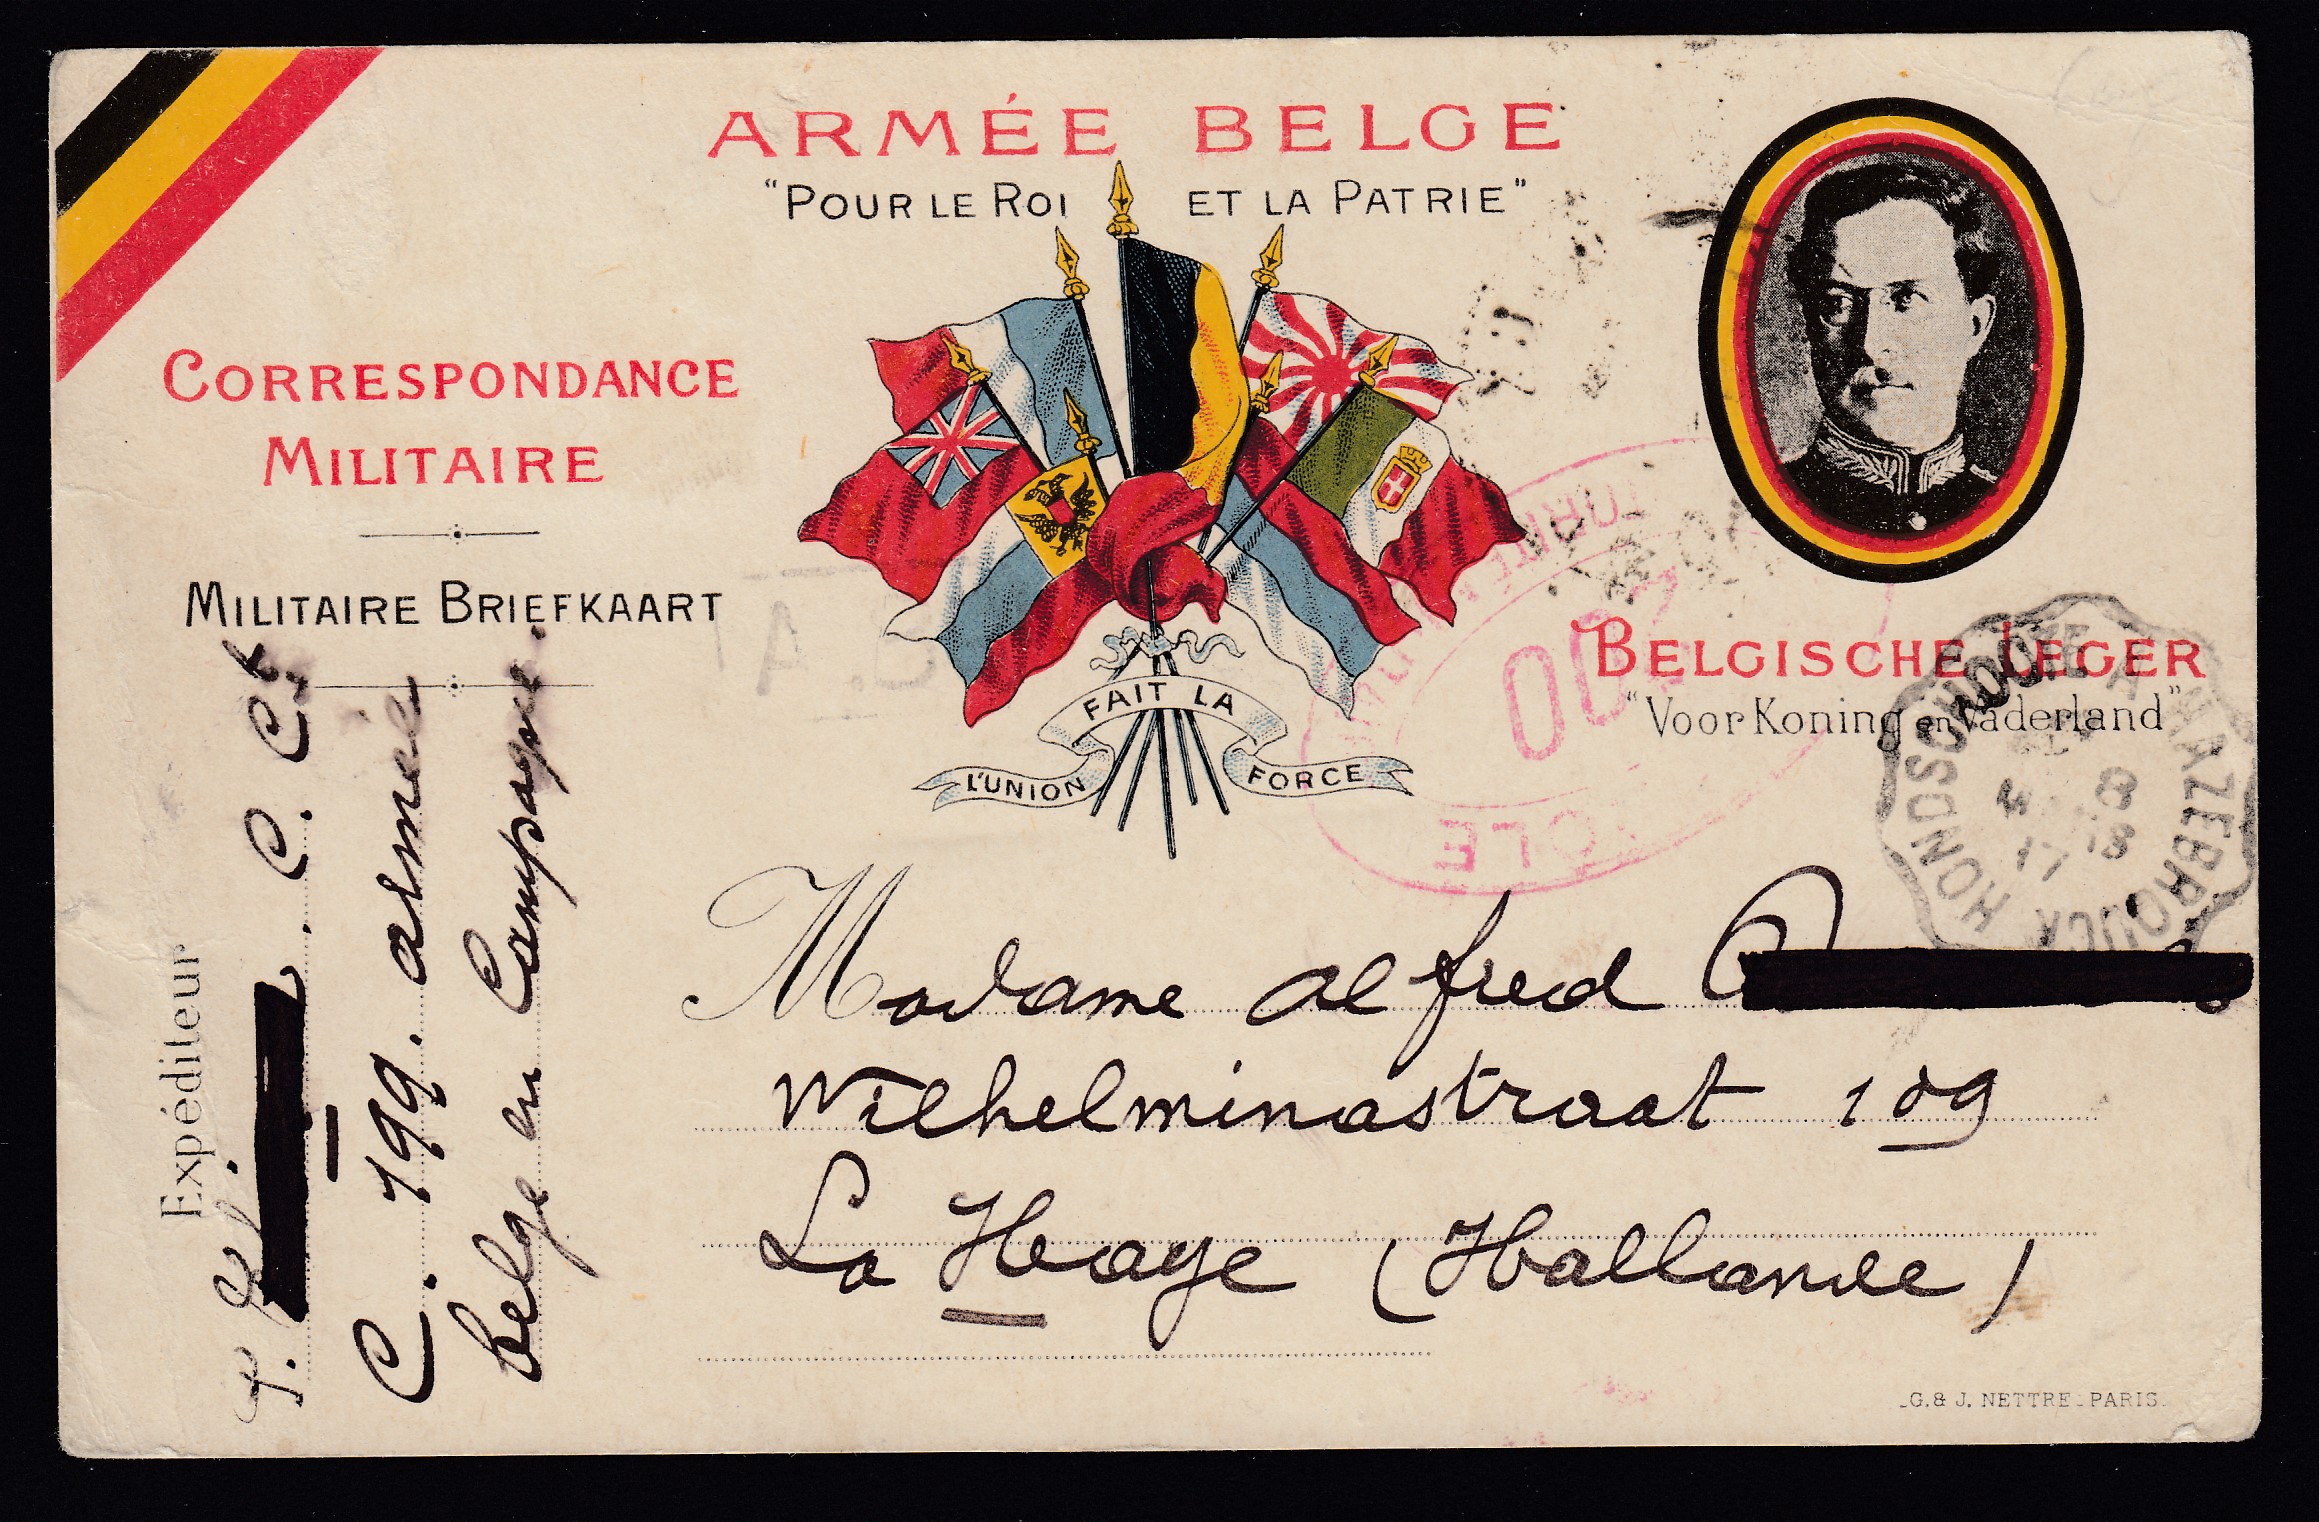 ARMÉE BELGE
"POUR LE ROI ET LA PATRIE"
CORRESPONDANCE
MILITAIRE
MILITAIRE BRIEFKAART
BELGISCHE LEGER
"Voor Koning en Vaderland"
FAIT LA
L'UNION FORCE
HONDSCHOOTE A HAZEBROUCK
8
17 18
OUVERT
200
Expéditeur
C. Ct
C. 199. armée
belge en Campagne.
Madame Alfred
Wilhelminastraat 109
La Haye (Hollande)
G. & J. NETTRE - PARIS